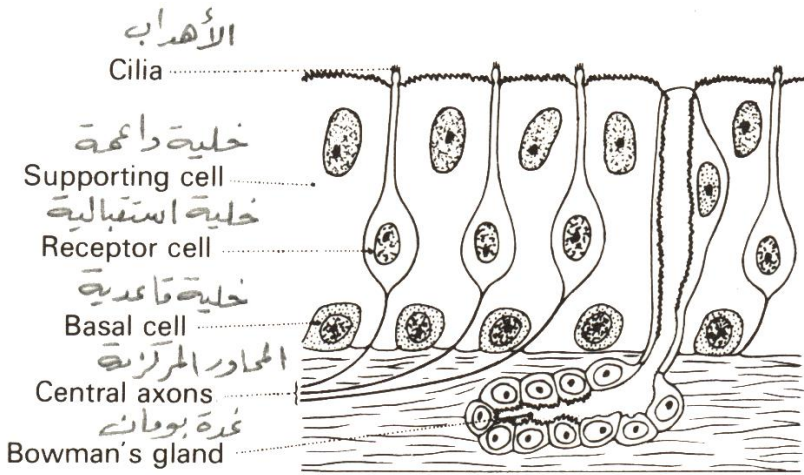 الأهداب
Cilia
خلية داعمة
Supporting cell
خلية استقبالية
Receptor cell
خلية قاعدية
Basal cell
المحاور المركزية
Central axons
غدة بومان
Bowman's gland